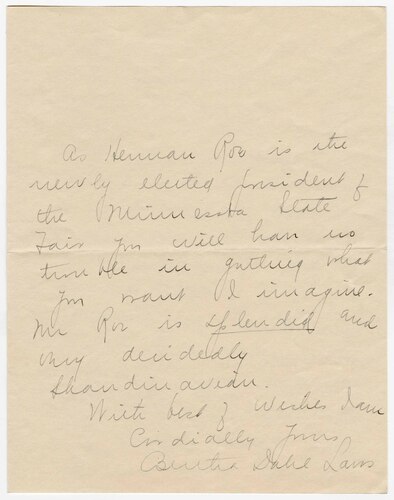 As Herman Roe is the
newly elected president of
the Minnesota State
Fair you will have no
trouble in getting what
you want I imagine.
Mr Roe is splendid and
very decidedly
Skandinavian.
With best of wishes I am
Cordially yours
Bertha Dahl Laws